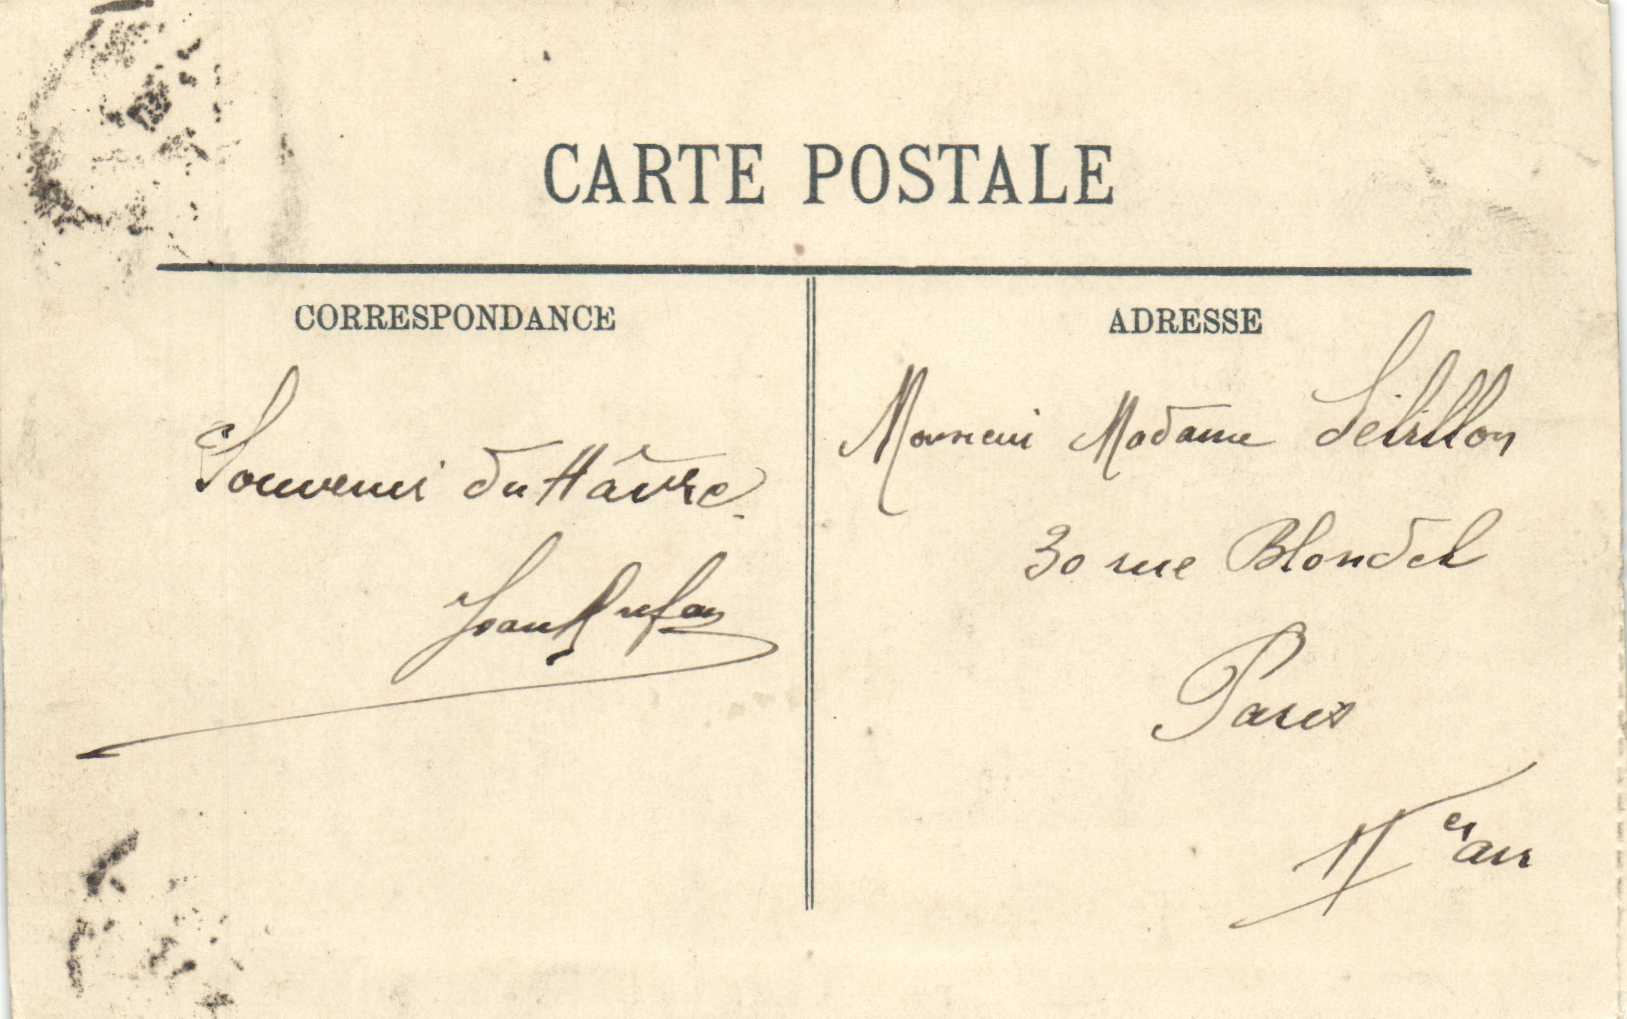 CARTE POSTALE
CORRESPONDANCE
Souvenir du Hâvre.
Jean
ADRESSE
Monsieur Madame
30 rue Blondel
Paris